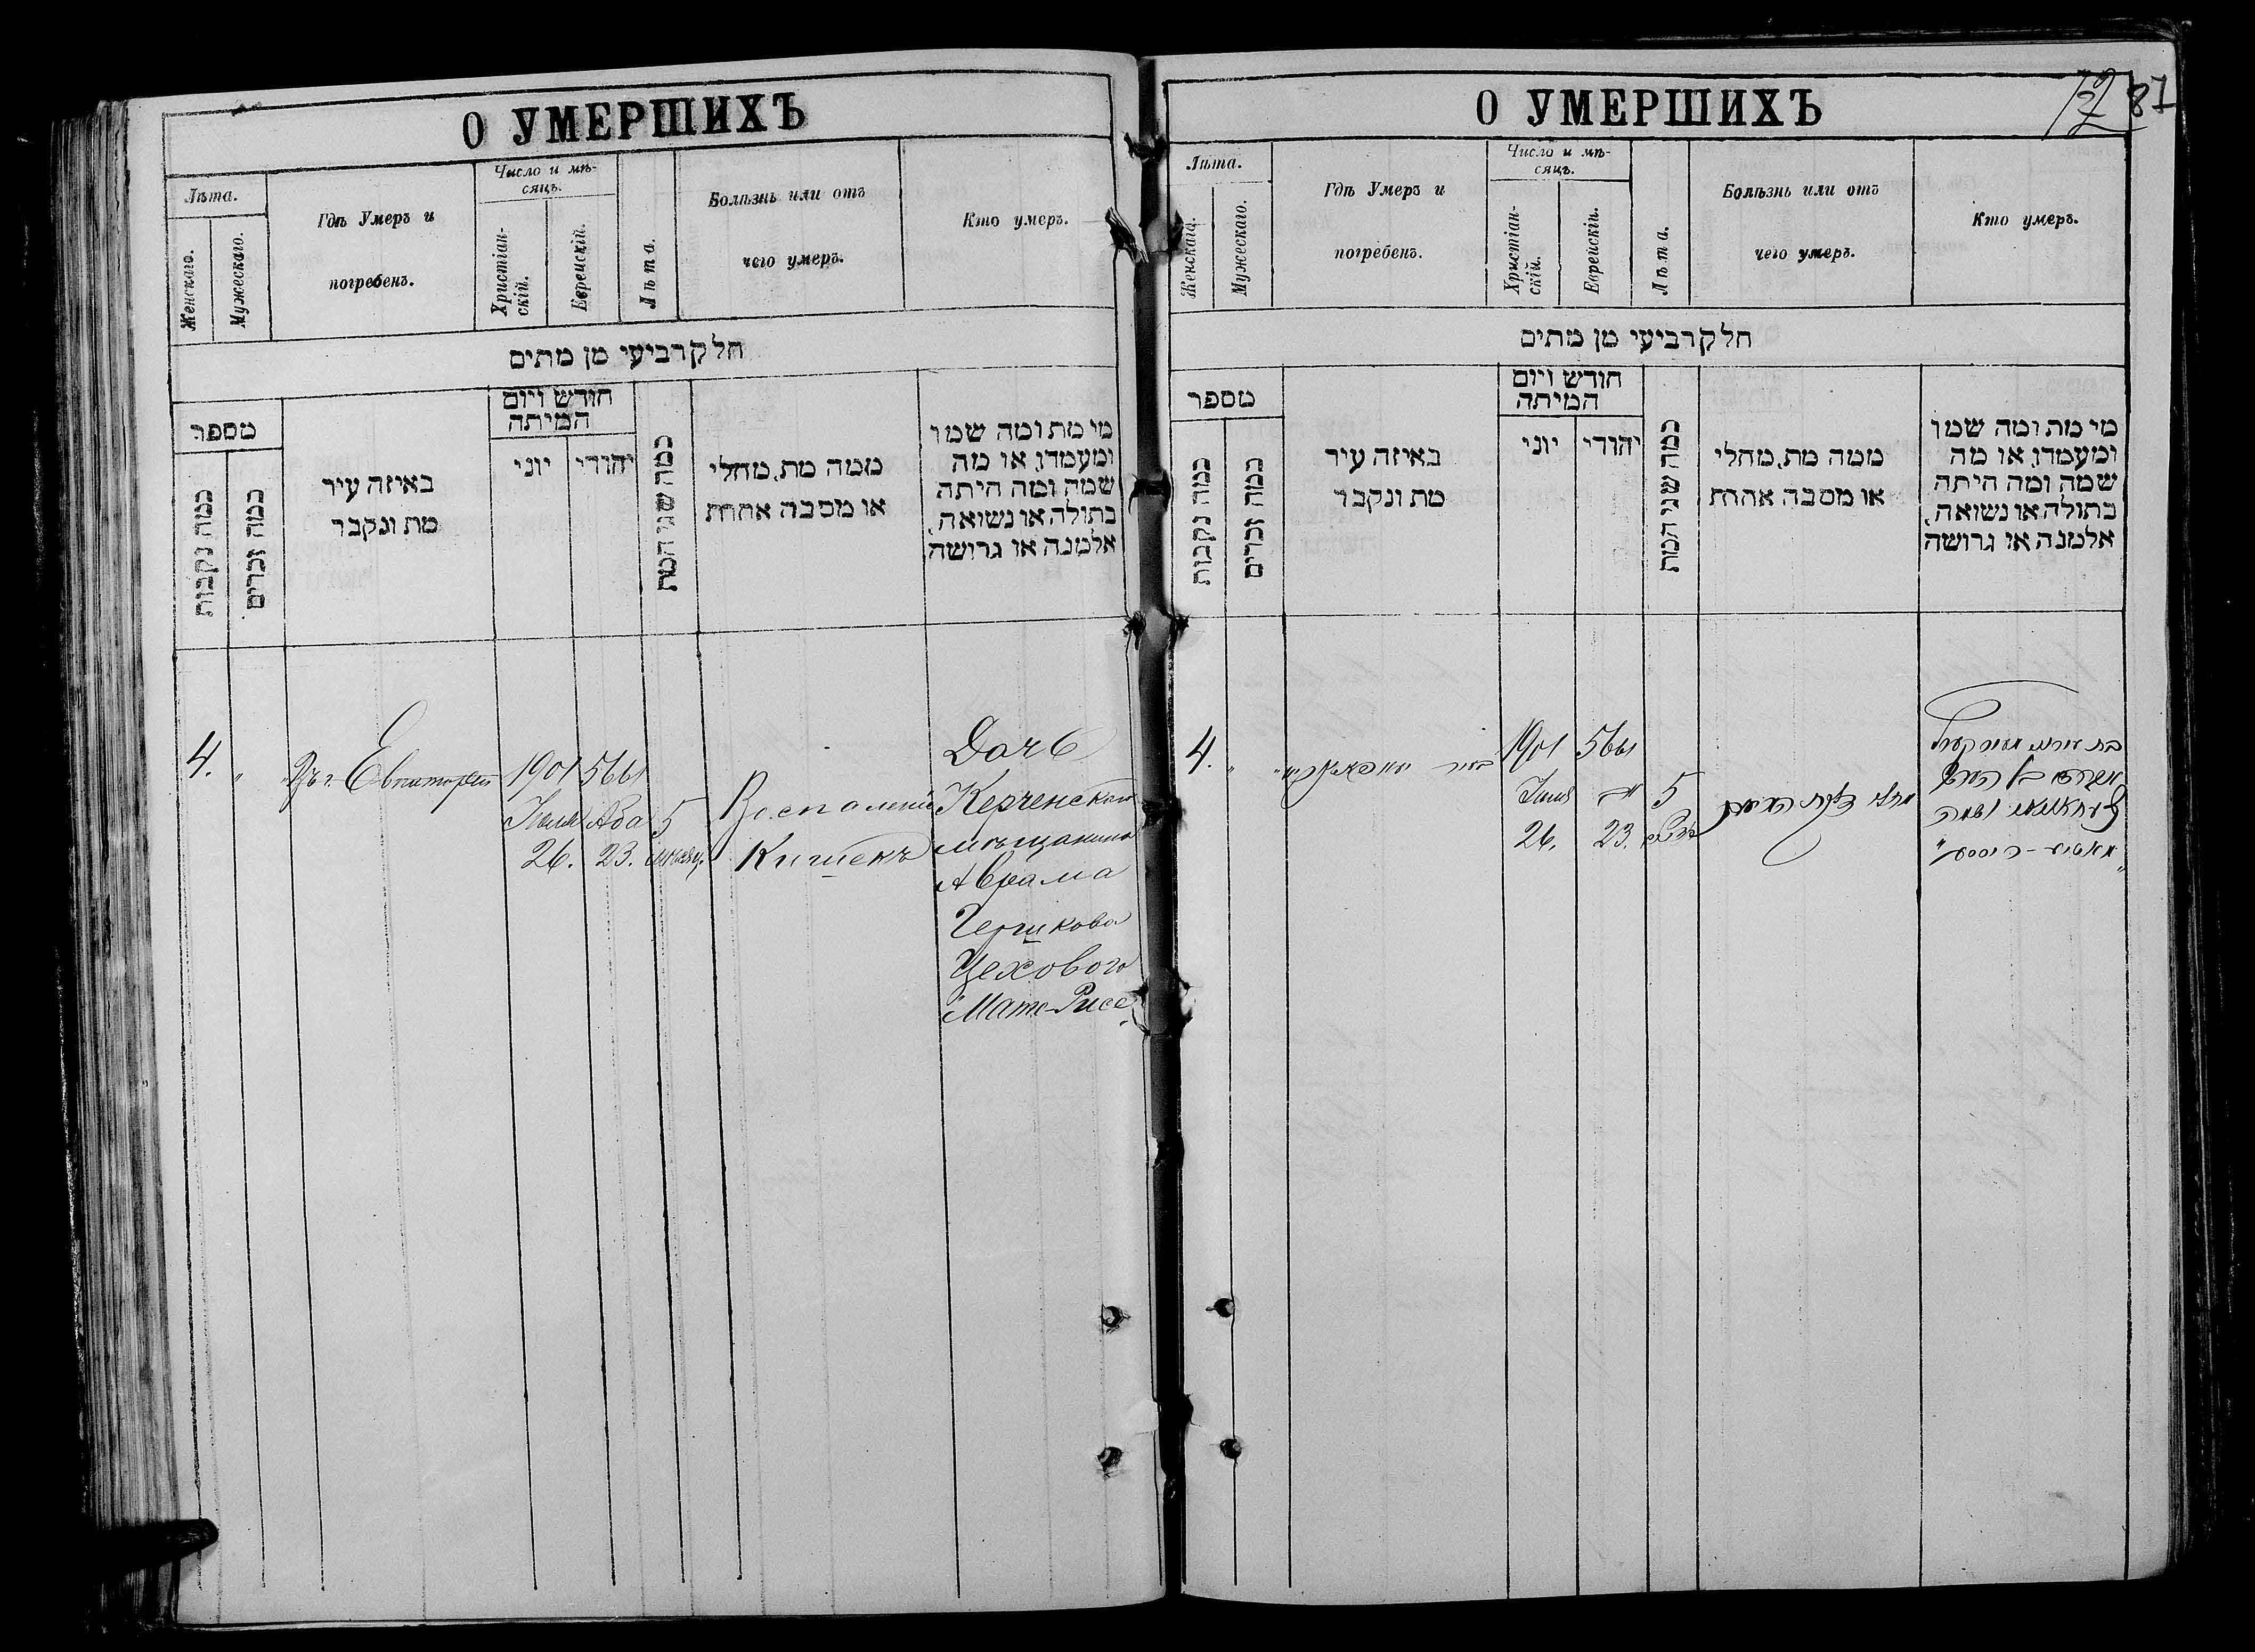 О УМЕРШИХЪ
Лѣта.
Женскаго.
Мужескаго.
Гдѣ Умеръ и
погребенъ.
Число и мѣ-
сяцъ.
Христіан-
скій.
Еврейскій.
Лѣта.
Болѣзнь или отъ
чего умеръ.
Кто умеръ.
חלק רביעי מן מתים
מספר
כמה נקבות
כמה זכרים
באיזה עיר
מת ונקבר
חודש ויום
המיתה
יוני
יהודי
כמה שני המת
ממה מת, מחלי
או מסבה אחרת
מי מת ומה שמו
ומעמדו, או מה
שמה ומה היתה
בתולה או נשואה,
אלמנה או גרושה
4.
"
Въ г. Евпаторіи
1901
Іюля
26.
5661
Ава
23.
5
мѣсяц.
Воспаленіе
Кишекъ
Дочь
Керченскаго
мѣщанина
Аврама
Гершкова
Цехового
"Мате-Рисе
О УМЕРШИХЪ
87
Лѣта.
Женскаго.
Мужескаго.
Гдѣ Умеръ и
погребенъ.
Число и мѣ-
сяцъ.
Христіан-
скій.
Еврейскій.
Лѣта.
Болѣзнь или отъ
чего умеръ.
Кто умеръ.
חלק רביעי מן מתים
מספר
כמה נקבות
כמה זכרים
באיזה עיר
מת ונקבר
חודש ויום
המיתה
יוני
יהודי
כמה שני המת
ממה מת, מחלי
או מסבה אחרת
מי מת ומה שמו
ומעמדו, או מה
שמה ומה היתה
בתולה או נשואה,
אלמנה או גרושה
4.
"
בעיר
1901
Іюля
26.
5661
אב
23.
5
בת איש